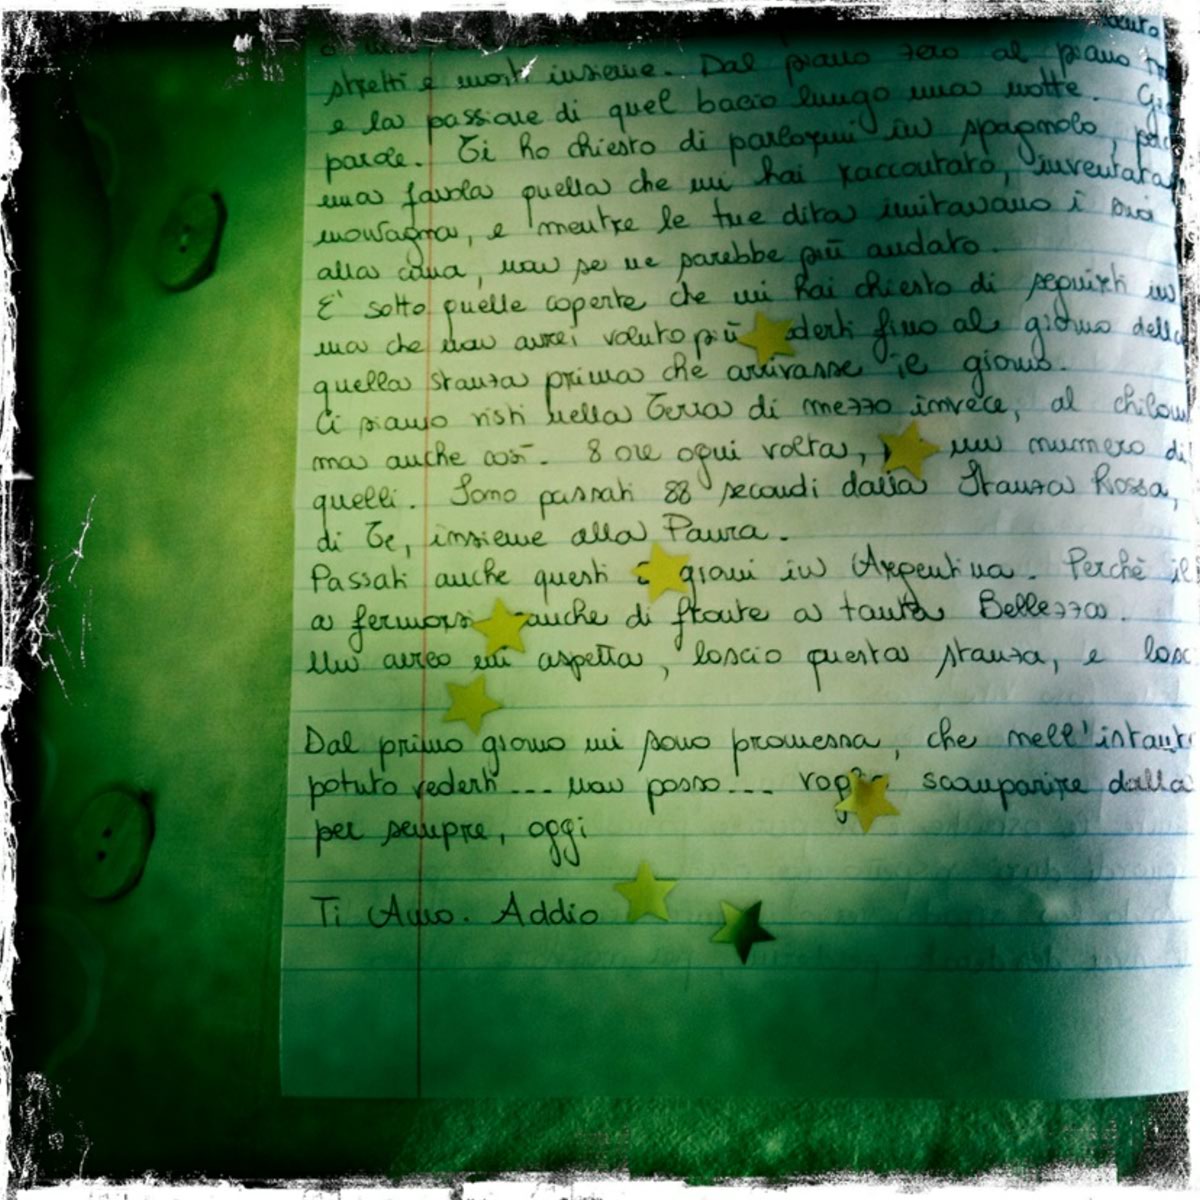 stretti e nascosti insieme. Dal piano zero al piano
e la passione di quel bacio lungo una notte.
parole. Ti ho chiesto di parlarmi in spagnolo,
una favola quella che mi hai raccontato, inventata
montagna, e mentre le tue dita imitavano i suoi
alla cima, non se ne sarebbe più andato.
E' sotto quelle coperte che mi hai chiesto di seguirti in
ma che non avrei voluto più derti fino al giorno della
quella stanza prima che arrivasse il giorno.
Ci siamo visti nella Terra di mezzo invece, al
ma anche così. 8 ore ogni volta, un numero di
quelli. Sono passati 88 secondi dalla Stanza Rossa,
di Te, insieme alla Paura.
Passati anche questi giorni in Argentina. Perchè il
a fermarsi anche di fronte a tanta Bellezza.
Un aereo mi aspetta, lascio questa stanza, e
Dal primo giorno mi sono promessa, che nell'istante
potuto vederti... non posso... voglio scomparire dalla
per sempre, oggi
Ti Amo. Addio